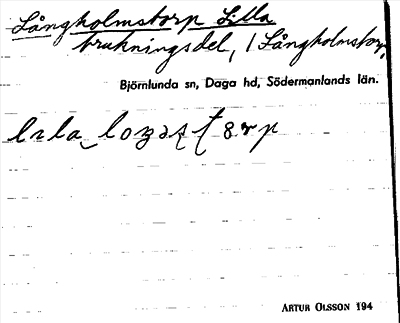 Långholmstorp Lilla
brukningsdel, i Långholmstorp,
Björnlunda sn, Daga hd, Södermanlands län.
ARTUR OLSSON 194